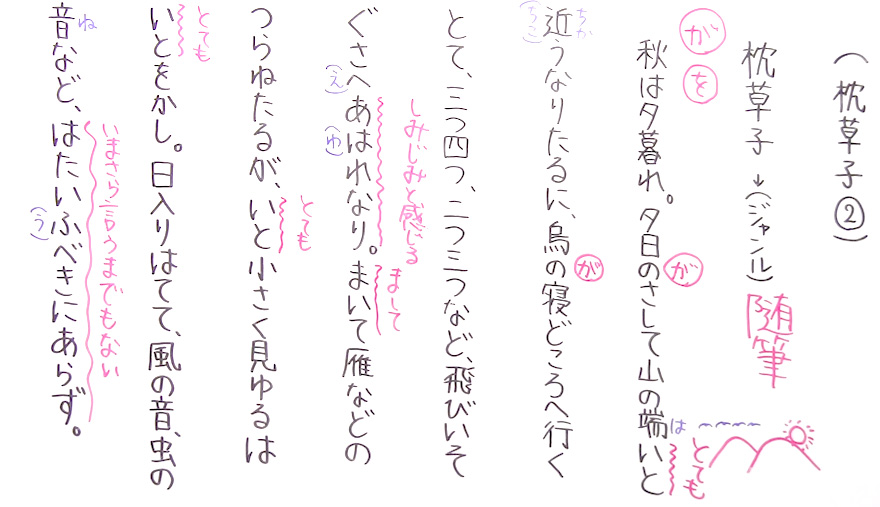 (枕草子②)
枕草子→(ジャンル)随筆
が を
が は とても
秋は夕暮れ。夕日のさして山の端いと
ちか が
近うなりたるに、烏の寝どころへ行く
(ちこ)
とて、三つ四つ、二つ三つなど、飛びいそ
しみじみと感じる まして
ぐさへあはれなり。まいて雁などの
(え) (ゆ)
とても
つらねたるが、いと小さく見ゆるは
とても
いとをかし。日入りはてて、風の音、虫の
ね いまさら言うまでもない
音など、はたいふべきにあらず。
(う)